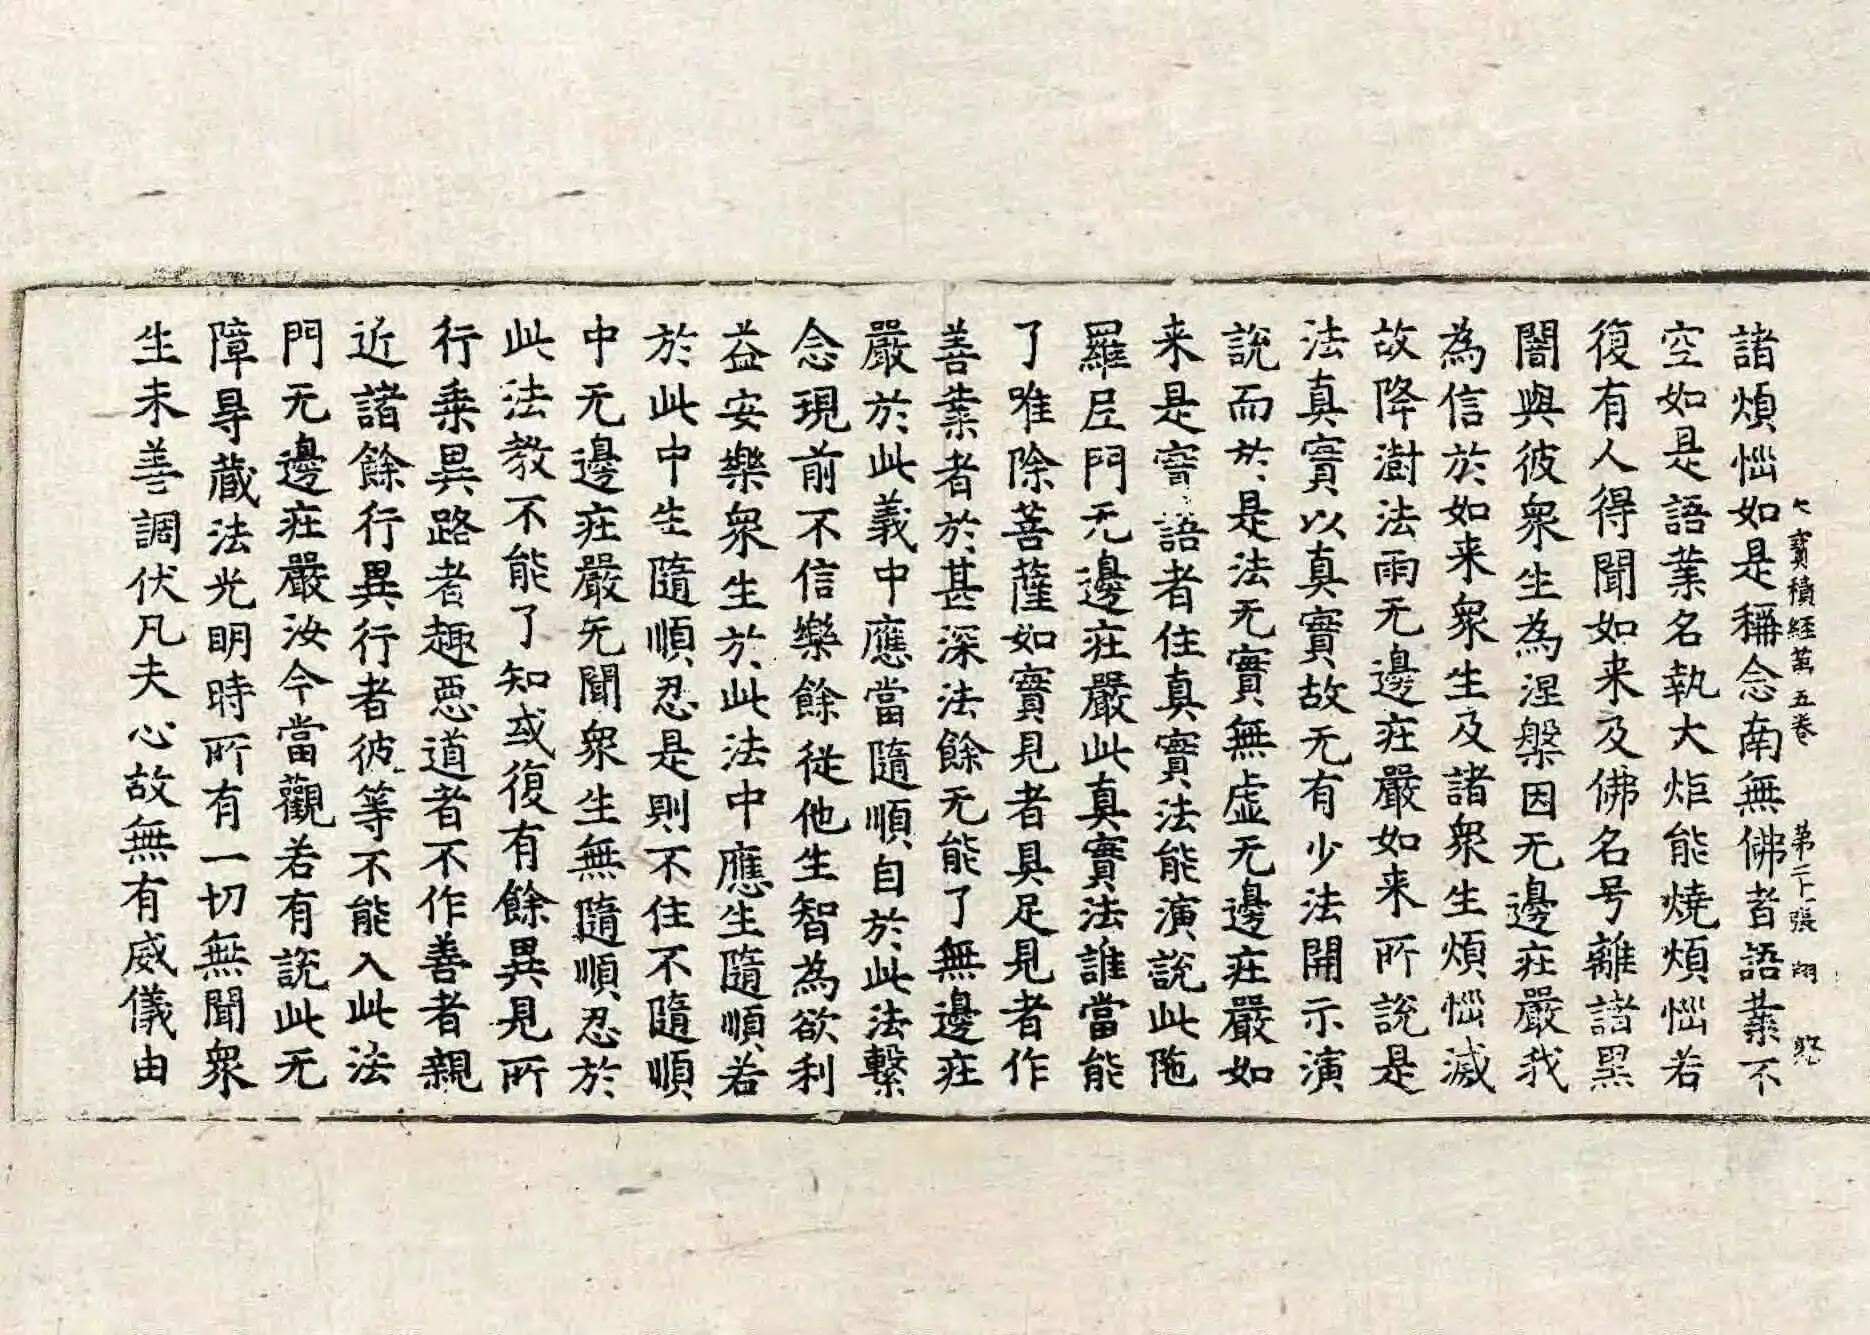 諸煩惱如是稱念南無佛者語業不
空如是語業名執大炬能燒煩惱若
復有人得聞如来及佛名号離諸黑
闇與彼衆生為涅槃因无邊莊嚴我
為信於如来衆生及諸衆生煩惱滅
故降澍法雨无邊莊嚴如来所說是
法真實以真實故无有少法開示演
說而於是法无實無虛无邊莊嚴如
来是實語者住真實法能演說此陁
羅尼門无邊莊嚴此真實法誰當能
了唯除菩薩如實見者具足見者作
善業者於甚深法餘无能了無邊莊
嚴於此義中應當隨順自於此法繫
念現前不信樂餘從他生智為欲利
益安樂衆生於此法中應生隨順若
於此中生隨順忍是則不住不隨順
中无邊莊嚴无聞衆生無隨順忍於
此法教不能了知或復有餘異見所
行乘異路者趣惡道者不作善者親
近諸餘行異行者彼等不能入此法
門无邊莊嚴汝今當觀若有說此无
障㝵藏法光明時所有一切無聞衆
生未善調伏凡夫心故無有威儀由
寶積經第五卷 第二十張 翔